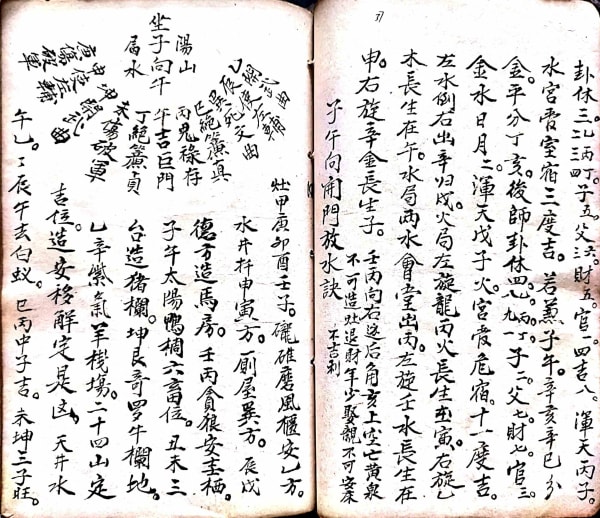 卦休三乙丙丁。子五。父六。財五。官一四吉八。渾天丙子。
水宮虛室宿三度吉。若蕪子午。辛亥辛巳分
金。平分丁亥。後師卦休四乙丙丁子二父七。財七。官三。
金水日月二。渾天戊子火。宮虛危宿。十一度吉。
左水倒右出辛歸戌火局左旋龍丙火長生在寅。右旋乙
木長生在午。水局兩水會堂出丙左旋壬水長生在
申。右旋辛金長生子。
壬丙向右边后角亥上空亡黄泉
不可造灶退財年少娶親不可安床
不吉利
子午向開門放水訣
陽山
坐子向午
屬水
乙輔
巽死文曲
巳絕簾貞
丙鬼祿存
午吉巨門
丁絕簾貞
未傷破軍
坤
申
灶甲庚卯酉壬子。礲碓磨風櫃安乙方。
水井杵申寅方。厠屋巽方。辰戌
德方造馬房。壬丙貪狼安圭栖。
子午太陽鴨椆六畜位。丑未三
台造猪欄。坤艮奇罗牛欄地。
乙辛紫氣羊棧場。二十四山定
吉位。造安移解定是凶。天井水
午乙。丁辰午去白蚁。巳丙申子吉。未坤三子旺。